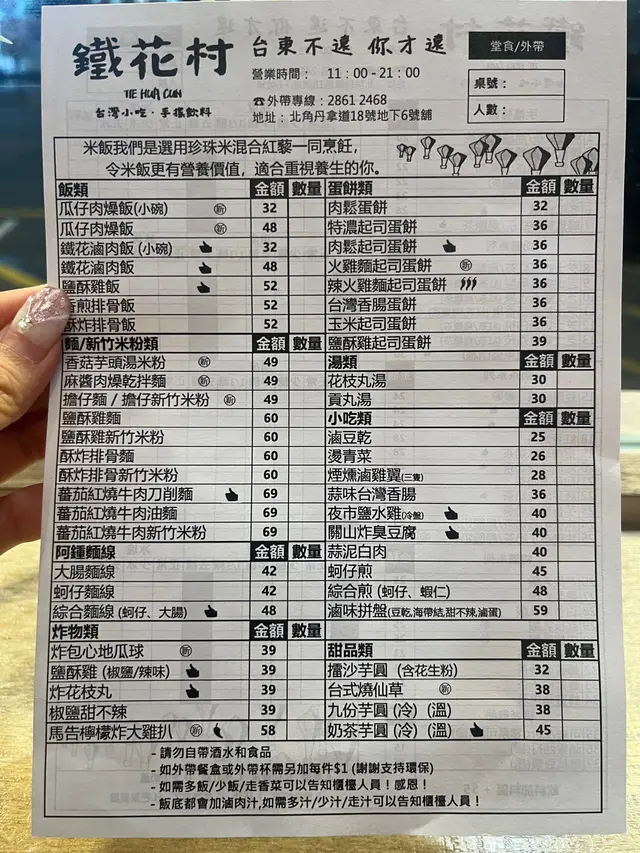 鐵花村
TIE HUA CUN
台灣小吃·手搖飲料
台東不遠 你才遠
營業時間： 11：00 - 21：00
☎外帶專線：2861 2468
地址：北角丹拿道18號地下6號舖
堂食/外帶
桌號：
人數：
米飯我們是選用珍珠米混合紅藜一同烹飪，
令米飯更有營養價值，適合重視養生的你。
飯類 金額 數量
瓜仔肉燥飯(小碗) 新 32
瓜仔肉燥飯 新 48
鐵花滷肉飯 (小碗) 32
鐵花滷肉飯 48
鹽酥雞飯 52
香煎排骨飯 52
酥炸排骨飯 52
麵/新竹米粉類 金額 數量
香菇芋頭湯米粉 新 49
麻醬肉燥乾拌麵 新 49
擔仔麵 / 擔仔新竹米粉 新 49
鹽酥雞麵 60
鹽酥雞新竹米粉 60
酥炸排骨麵 60
酥炸排骨新竹米粉 60
蕃茄紅燒牛肉刀削麵 69
蕃茄紅燒牛肉油麵 69
蕃茄紅燒牛肉新竹米粉 69
阿鍾麵線 金額 數量
大腸麵線 42
蚵仔麵線 42
綜合麵線 (蚵仔、大腸) 48
炸物類 金額 數量
炸包心地瓜球 新 39
鹽酥雞 (椒鹽/辣味) 39
炸花枝丸 39
椒鹽甜不辣 39
馬告檸檬炸大雞扒 新 58
蛋餅類 金額 數量
肉鬆蛋餅 32
特濃起司蛋餅 36
肉鬆起司蛋餅 36
火雞麵起司蛋餅 新 36
辣火雞麵起司蛋餅 36
台灣香腸蛋餅 36
玉米起司蛋餅 36
鹽酥雞起司蛋餅 39
湯類 金額 數量
花枝丸湯 30
貢丸湯 30
小吃類 金額 數量
滷豆乾 25
燙青菜 26
煙燻滷雞翼(三隻) 28
蒜味台灣香腸 36
夜市鹽水雞(冷盤) 40
關山炸臭豆腐 40
蒜泥白肉 40
蚵仔煎 45
綜合煎 (蚵仔、蝦仁) 48
滷味拼盤(豆乾,海帶結,甜不辣,滷蛋) 59
甜品類 金額 數量
擂沙芋圓 (含花生粉) 32
台式燒仙草 新 38
九份芋圓 (冷) (溫) 38
奶茶芋圓 (冷) (溫) 45
- 請勿自帶酒水和食品
- 如外帶餐盒或外帶杯需另加每件$1 (謝謝支持環保)
- 如需多飯/少飯/走香菜可以告知櫃檯人員！感恩！
- 飯底都會加滷肉汁,如需多汁/少汁/走汁可以告知櫃檯人員！